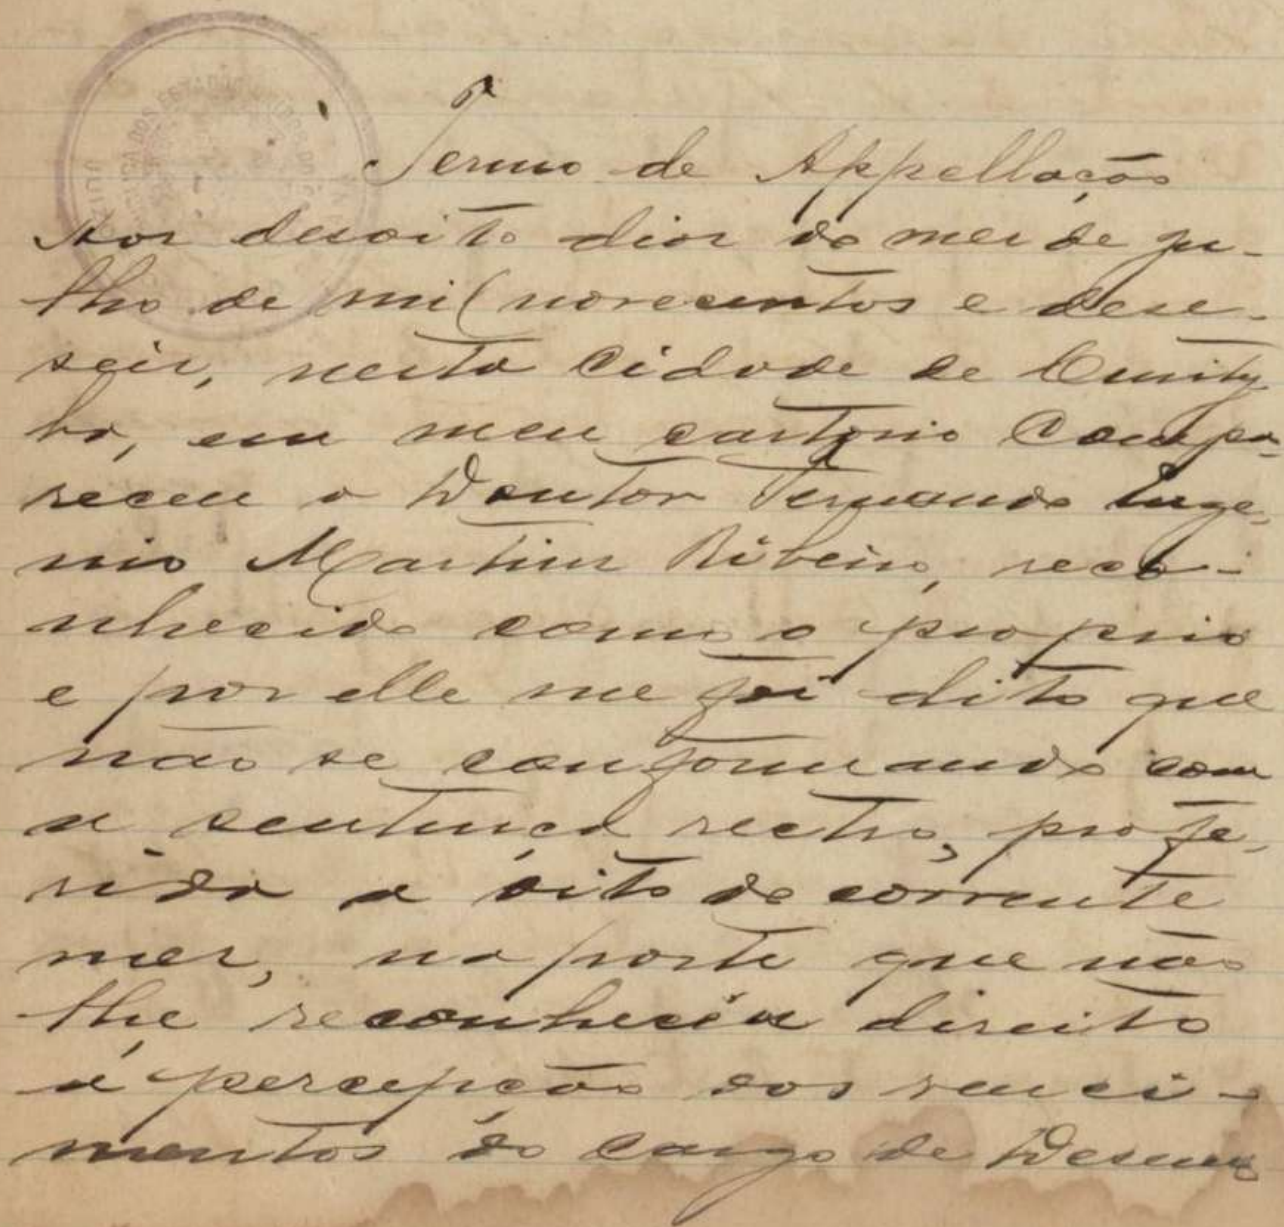 Termo de Appellação
Aos desoito dias do mez de ju-
lho de mil novecentos e dese-
seis, nesta Cidade de Curity
ba, em meu cartorio Compa-
receu o Doutor Fernando Euge-
nio Martins Ribeiro, reco-
nhecido como o proprio
e por elle me foi dito que
não se conformando com
a sentença rectro, profe-
rida a oito do corrente
mez, na parte que não
lhe reconhecia direito
á percepção dos venci-
mentos do cargo de Desem